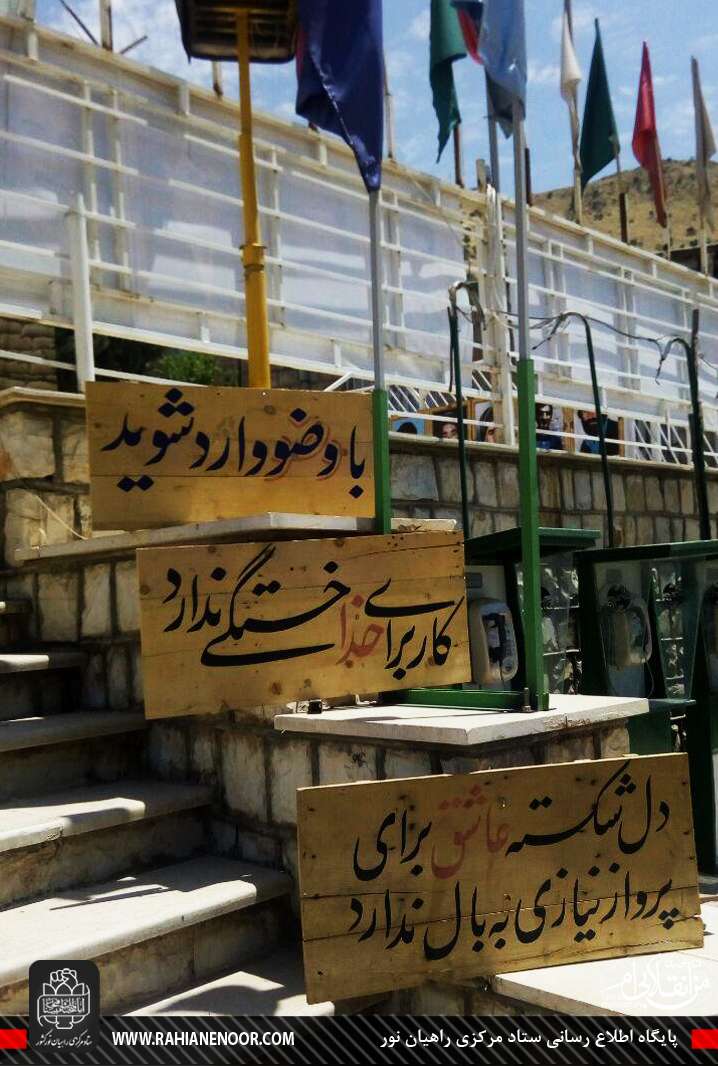 با وضو وارد شوید
کار برای خدا خستگی ندارد
دل شکسته عاشق برای
پرواز نیازی به بال ندارد
WWW.RAHIANENOOR.COM
پایگاه اطلاع رسانی ستاد مرکزی راهیان نور